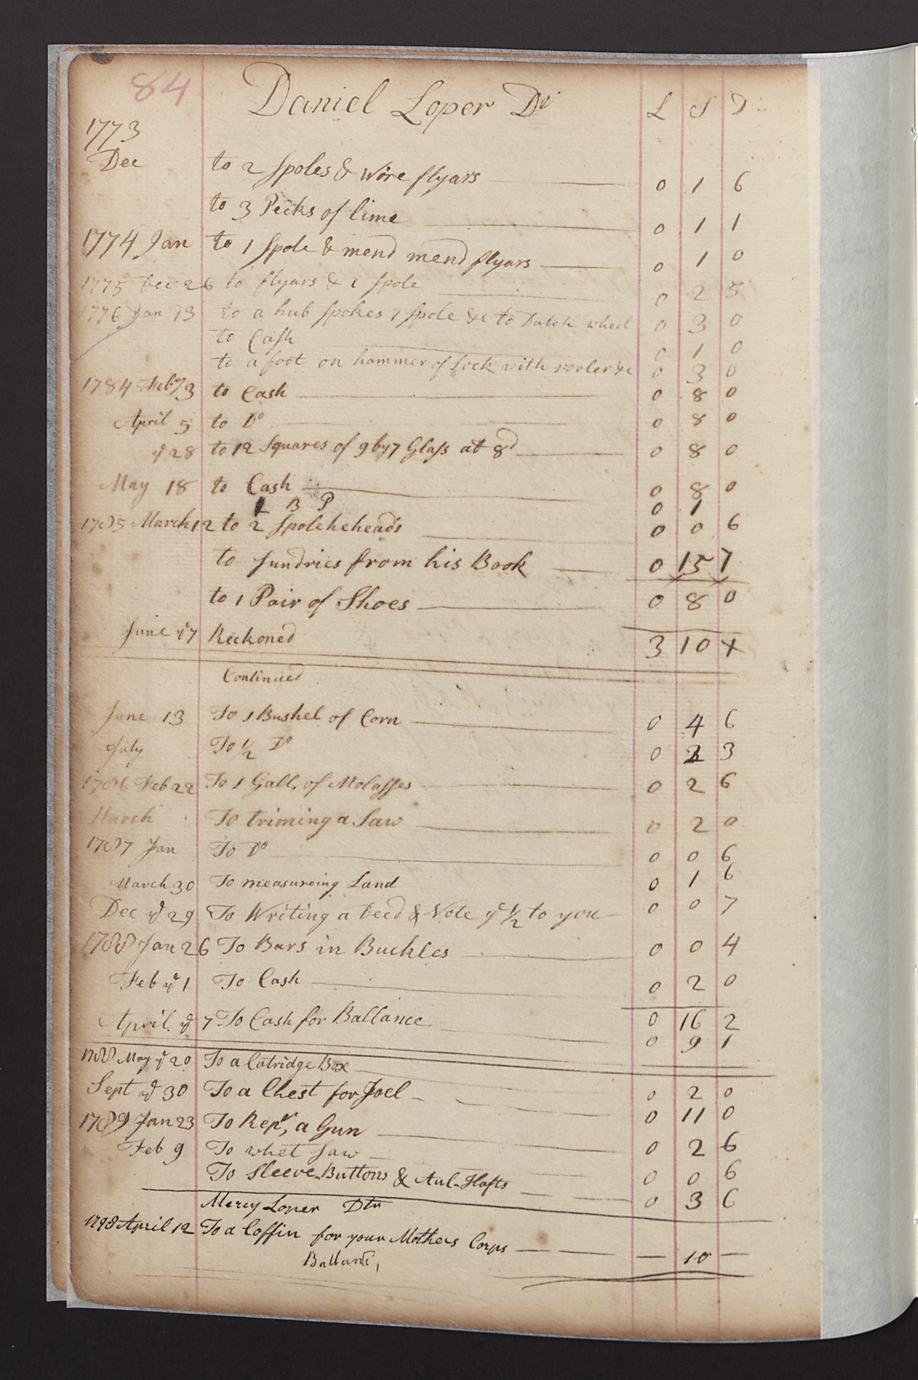 84
Daniel Loper Dr L S D
1773
Dec to 2 Spoles & Wire flyars 0 1 6
to 3 Pecks of lime 0 1 1
1774 Jan to 1 Spole & mend mend flyars 0 1 0
1775 Dec 26 to flyars & 1 Spole 0 2 5
1776 Jan 13 to a hub spokes 1 Spole &c to Dutch wheel 0 3 0
to Cash 0 1 0
to a foot on hammer of Lock with &c 0 3 0
1784 Feb 3 to Cash 0 8 0
April 5 to Do 0 8 0
ye 28 to 12 Squares of 9 by 7 Glass at 8d 0 8 0
May 18 to Cash 0 8 0
B P 0 1
1785 March 12 to 2 Spoleheads 0 0 6
to Sundries from his Book 0 15 7
to 1 Pair of Shoes 0 8 0
June 17 Reckoned 3 10 7
Continued
June 13 To 1 Bushel of Corn 0 4 6
July To 1/2 Do 0 2 3
1786 Feb 22 To 1 Gall, of Molasses 0 2 6
March To triming a Saw 0 2 0
1787 Jan To Do 0 0 6
March 30 To measureing Land 0 1 6
Dec ye 29 To Writing a Deed & Note ye 1/2 to you 0 0 7
1788 Jan 26 To Bars in Buckles 0 0 4
Feb ye 1 To Cash 0 2 0
0 16 2
April ye 7 To Cash for Ballance 0 9 1
1788 May ye 20 To a Catridge Box
Sept ye 30 To a Chest for Joel 0 2 0
0 11 0
1789 Jan 23 To Repr, a Gun 0 2 6
Feb 9 To whet Saw 0 0 6
To Sleeve Buttons & Aul-Hafts 0 3 6
Mercy Loper Dtr
1798 April 12 To a Coffin for your Mothers Corps — 10 —
Ballancd,